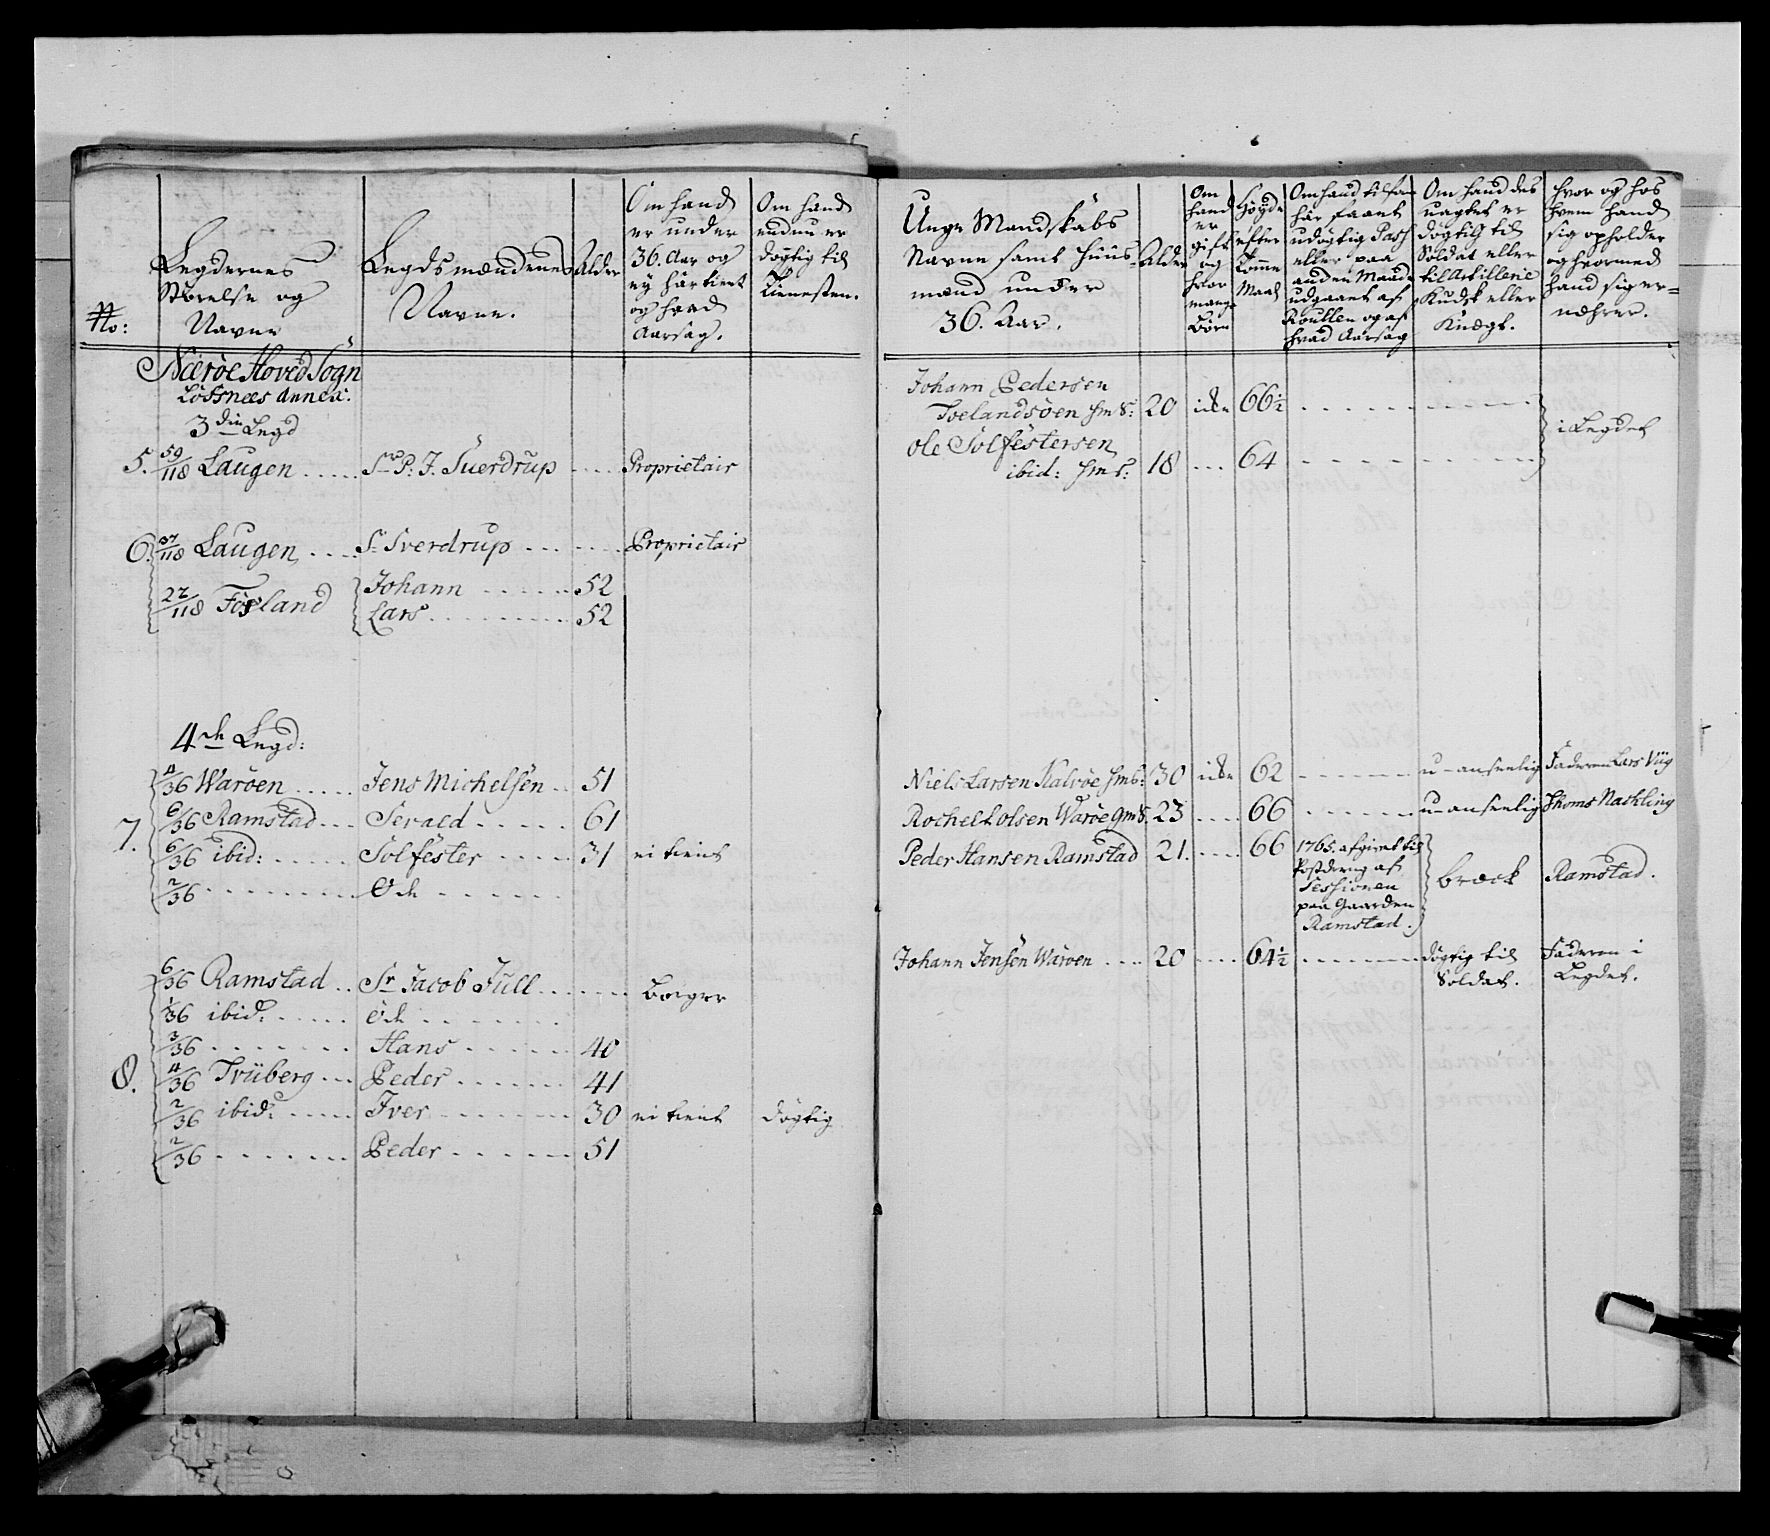 No:
Legdernes
Störelse og
Navne
Legdsmændenes
Navne.
Alder
Om hand
er under
36. Aar og
ey har tient
og hvad
Aarsag.
Om hand
endnu er
dögtig til
Tienesten.
Næröe Hoved Sogn
Lössnæs Annex.
3die Legd
5. 59/118 Laugen ..... Sr P: J. Suerdrup .... Proprietair
6. 37/118 Laugen .... Sr Sverdrup ... .... Proprietair
22/118 Fösland Johann ...... 52
Lars ......... 52
4de Legd:
7.
4/36 Waröen ..... Jens Michelsen .. 51
6/36 Ramstad ... Sevald ..... 61
6/36 ibid: ..... Solfester .... 31 ei tient
2/36 ......... Öde ......
8.
6/36 Ramstad .. Sr Jacob Jull ....... Borger
1/36 ibid: ..... Öde ......
3/36 ....... Hans ...... 40
4/36 Trüberg ... Peder ...... 41
2/36 ibid: ..... Iver ....... 30 ei tient dögtig
2/36 ....... Peder ...... 51
Unge Mandskabs
Navne samt Huus-
mænd under
36. Aar.
Alder
Om
hand
er
gift
og
hvor
mange
Börn
Höyde
efter
Tomme
Maal
Om hand tilforn
har faaet
udögtig Pass
eller paa
anden Maade
udgaaet af
Roullen og af
hvad Aarsag
Om hand des
uagtet er
dögtig til
Soldat eller
til Artillerie
Kudsk eller
Knægt.
hvor og hos
hvem hand
sig opholder
og hvormed
hand sig er-
næhrer.
Johann Pedersen
Toelandsöen 20 ikke 66½ ..... ......
Ole Solfestersen
ibid: 18 ... 64 ..... ......
i Legdet
Niels Larsen Kalvöe 30 ikke 62 ...... u-anseelig Faderen Lars Viig
Rochel Olsen Waröe 23 .... 66 ...... u-anseelig Thoms Nackling
Peder Hansen Ramstad 21. .... 66 1765. afgivet til
af
Sessionen
paa Gaarden
Ramstad.
bræck Ramstad.
Johann Jensen Waröen .... 20 .... 64½ ........ dögtig til
Soldat.
Faderen i
Legdet.